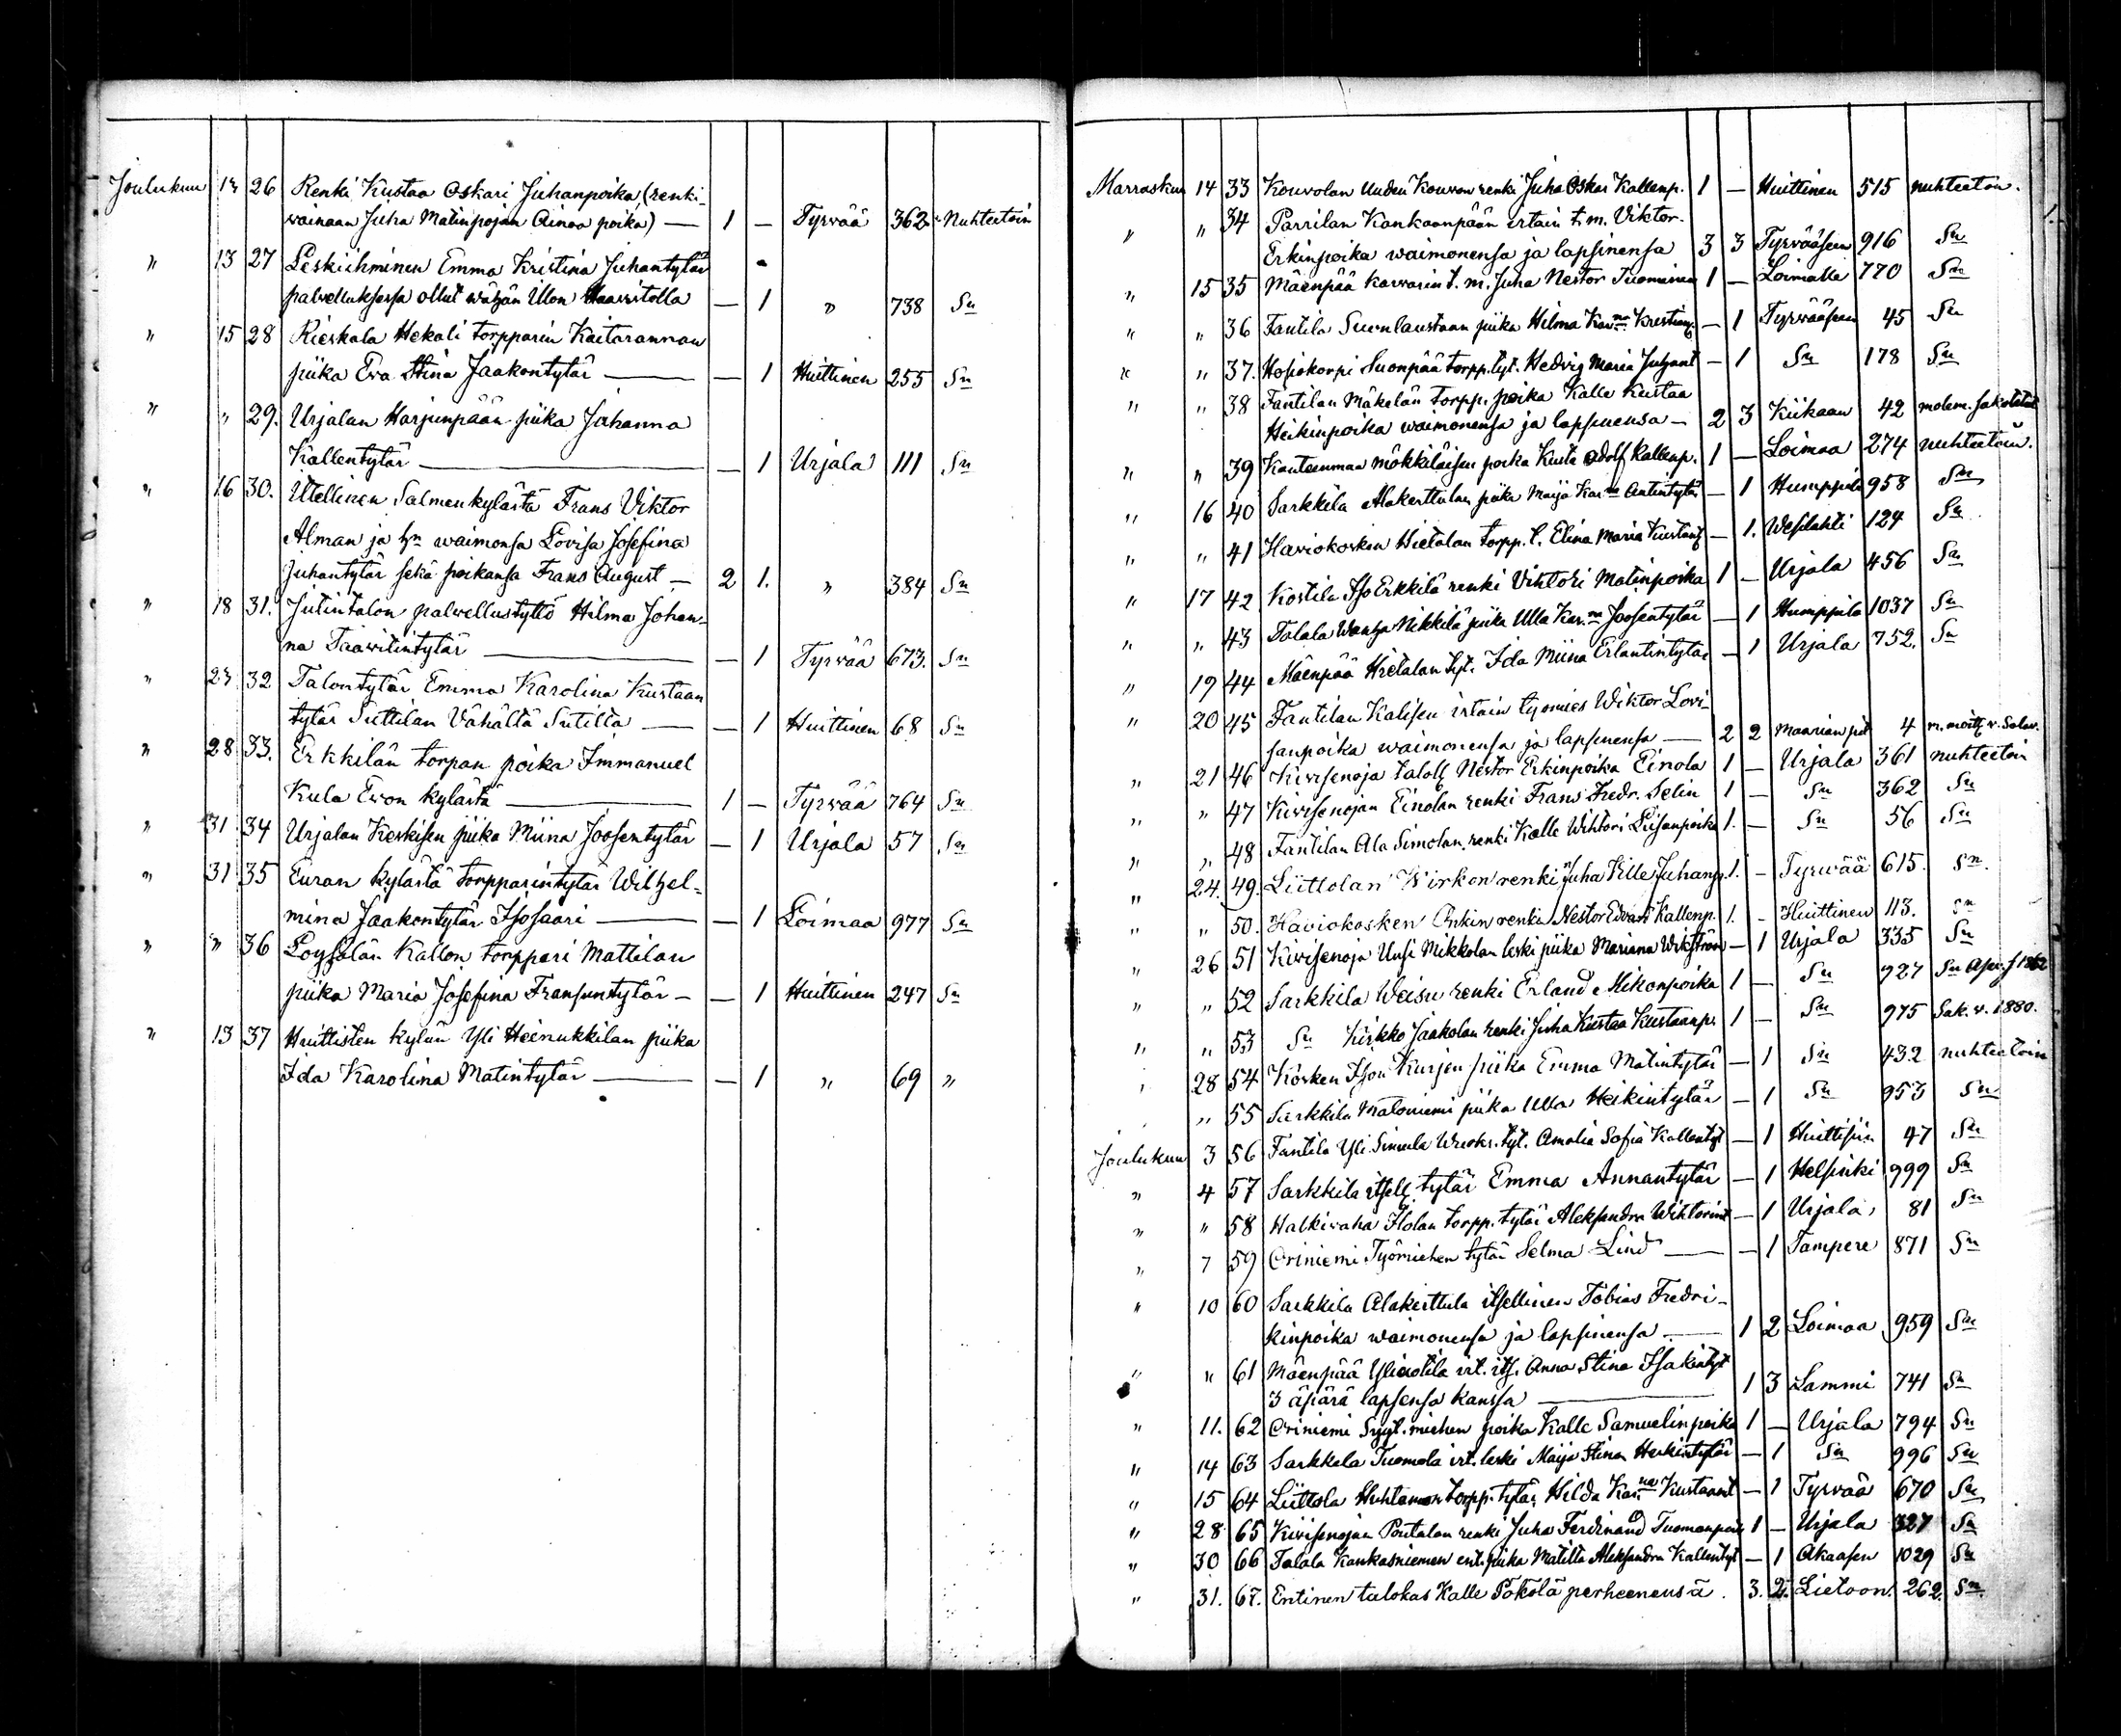 Joulukuu 12 26 Renki Kustaa Oskari Juhanpoika, (renki-
wainaan Juha Matinpojan Ainoa poika) — 1 — Tyrvää 362 Nuhteetoin
" 13 27 Leskiihminen Emma Kristina Juhantytär
palvelluksessa ollut wähän Illon Haavistolla — 1 " 738 Sn
" 15 28 Rieskala Hekali torpparin Kaitarannan
piika Eva Stina Jaakontytär — — 1 Huittinen 255 Sn
" " 29. Urjalan Harjunpään piika Johanna
Kallentytär — — 1 Urjala 111 Sn
" 16 30. Itellinen Salmenkylästä Frans Viktor
Alman ja hn waimonsa Lovisa Josefina
Juhantytär sekä poikansa Frans August — 2 1. " 384 Sn
" 18 31. Jutintalon palvellustyttö Hilma Johan-
na Taawilintytär — — 1 Tyrvää 673. Sn
" 23 32 Talontytär Emma Karolina Kustaan
tytär Suttilan Vähältä Sutilla — — 1 Huittinen 68 Sn
" 28 33. Erkkilän torpan poika Immanuel
Kula Ewon kylästä — 1 — Tyrvää 764 Sn
" 31 34 Urjalan Keskisen piika Miina Joosentytär — 1 Urjala 57 Sn
" 31 35 Euran kylästä torpparintytär Wilhel-
mina Jaakontytär Isosaari — — 1 Loimaa 977 Sn
" " 36 Loysälän Kallon torppari Mattilan
piika Maria Josefina Fransuntytär — — 1 Huittinen 247 Sn
" 13 37 Huittisten kylän Yli Heinukkilan piika
Ida Karolina Matintytär — — 1 " 69 "
Marraskuu 14 33 Kouvolan Uuden Kouvon renki Juha Oskar Kallenp. 1 — Huittinen 515 nuhteetoin.
" " 34 Parrilan Kankaanpään irtain t. m. Viktor
Erkinpoika waimonensa ja lapsinensa 3 3 Tyrvääseen 916 Sn
" 15 35 Mäenpää Karvarin t. m. Juha Nestor Tuominen 1 — Loimalle 770 Sn
" " 36 Fantila piika Hilma Karna — 1 Tyrvääseen 45 Sn
" " 37. Hosiokorpi Suonpää torpp. tyt. Hedvig Maria Juhant — 1 Sn 178 Sn
" " 38 Fantilan Mäkelän torpp. poika Kalle Kustaa
Heikinpoika waimonensa ja lapsinensa — 2 3 Kiikaan 42 molem. sakotetut
" " 39 Kanteenmaa mökkiläisen poika Kusta Adolf Kallenp. 1 — Loimaa 274 nuhteetoin.
" 16 40 Sarkkila Alakerttulan piika Maija Karna Antintytär — 1 Humppila 958 Sn
" " 41 Haviokosken Hietalan torpp. t. Elina Maria Kustant — 1. Wesilahti 124 Sn
" 17 42 Kostila Iso Erkkilä renki Vihtori Matinpoika 1 — Urjala 456 Sn
" " 43 Talala Wanha Nikkilä piika Ulla Karna Joosentytär — 1 Humppila 1037 Sn
" 19 44 Mäenpää Hietalan tyt. Ida Miina Erlantintytär — 1 Urjala 752. Sn
" 20 45 Fantilan Kalisen irtain työmies Wiktor Lovi-
sanpoika waimonensa ja lapsinensa — 2 2 Maarian pit 4
" 21 46 Kivisenoja taloll Nestor Erkinpoika Einola 1 — Urjala 361 nuhteetoin
" " 47 Kivisenojan Einolan renki Frans Fredr. Selin 1 — Sn 362 Sn
" " 48 Fantilan Ala Simolan renki Kalle Wihtori Liisanpoika 1. — Sn 56 Sn
" 24. 49. Liittolan Wirkon renki Juha Kalle Juhanp. 1. — Tyrwää 615. Sn.
" " 50. Haviokosken Onkin renki Nestor Edvart Kallenp. 1. — Huittinen 113. Sn
" 26 51 Kivisenoja Uusi Mikkolan leski piika Mariana Wikström — 1 Urjala 335 Sn
" " 52 Sarkkila Weisu renki Erland Mikonpoika 1 — Sn 927 Sn
" " 53 Sn Kirkko Jaakolan renki Juha Kustaa Kustaanp. 1 — Sn 975 Sak. v. 1880.
" 28 54 Kosken Ison Kurjen piika Emma Matintytär — 1 Sn 432 nuhteetoin
" " 55 Sarkkila Mataniemi piika Ulla Heikintytär — 1 Sn 953 Sn
Joulukuu 3 56 Fantila Yli Simula tyt. Amalia Sofia Kallentyt — 1 Huittisiin 47 Sn
" 4 57 Sarkkila itsell. tytär Emma Annantytär — 1 Helsinki 999 Sn
" " 58 Halkivaha Ilolan torpp. tytär Aleksandra Wihtorint — 1 Urjala 81 Sn
" 7 59 Oriniemi Työmiehen tytär Selma Lind — — 1 Tampere 871 Sn
" 10 60 Sarkkila Alakerttula itsellinen Tobias Fredri-
kinpoika waimonensa ja lapsinensa — 1 2 Loimaa 959 Sn
" " 61 Mäenpää irt. its. Anna Stina Isakintyt
3 äpärä lapsensa kanssa — 1 3 Lammi 741 Sn
" 11. 62 Oriniemi miehen poika Kalle Samuelinpoika 1 — Urjala 794 Sn
" 14 63 Sarkkila Tuomola irt. leski Maija Stina Heikintytär — 1 Sn 996 Sn
" 15 64 Liittola Huhtamon torpp. tytär Hilda Karna Kustaant — 1 Tyrvää 670 Sn
" 28 65 Kivisenojan Pontalan renki Juha Ferdinand Tuomanpoik 1 — Urjala 327 Sn
" 30 66 Talala Kankasniemen ent. piika Matilta Aleksandra Kallentyt — 1 Akaasen 1029 Sn
" 31. 67. Entinen talokas Kalle Pökölä perheenensä. 3. 2. Lietoon. 262. Sn.